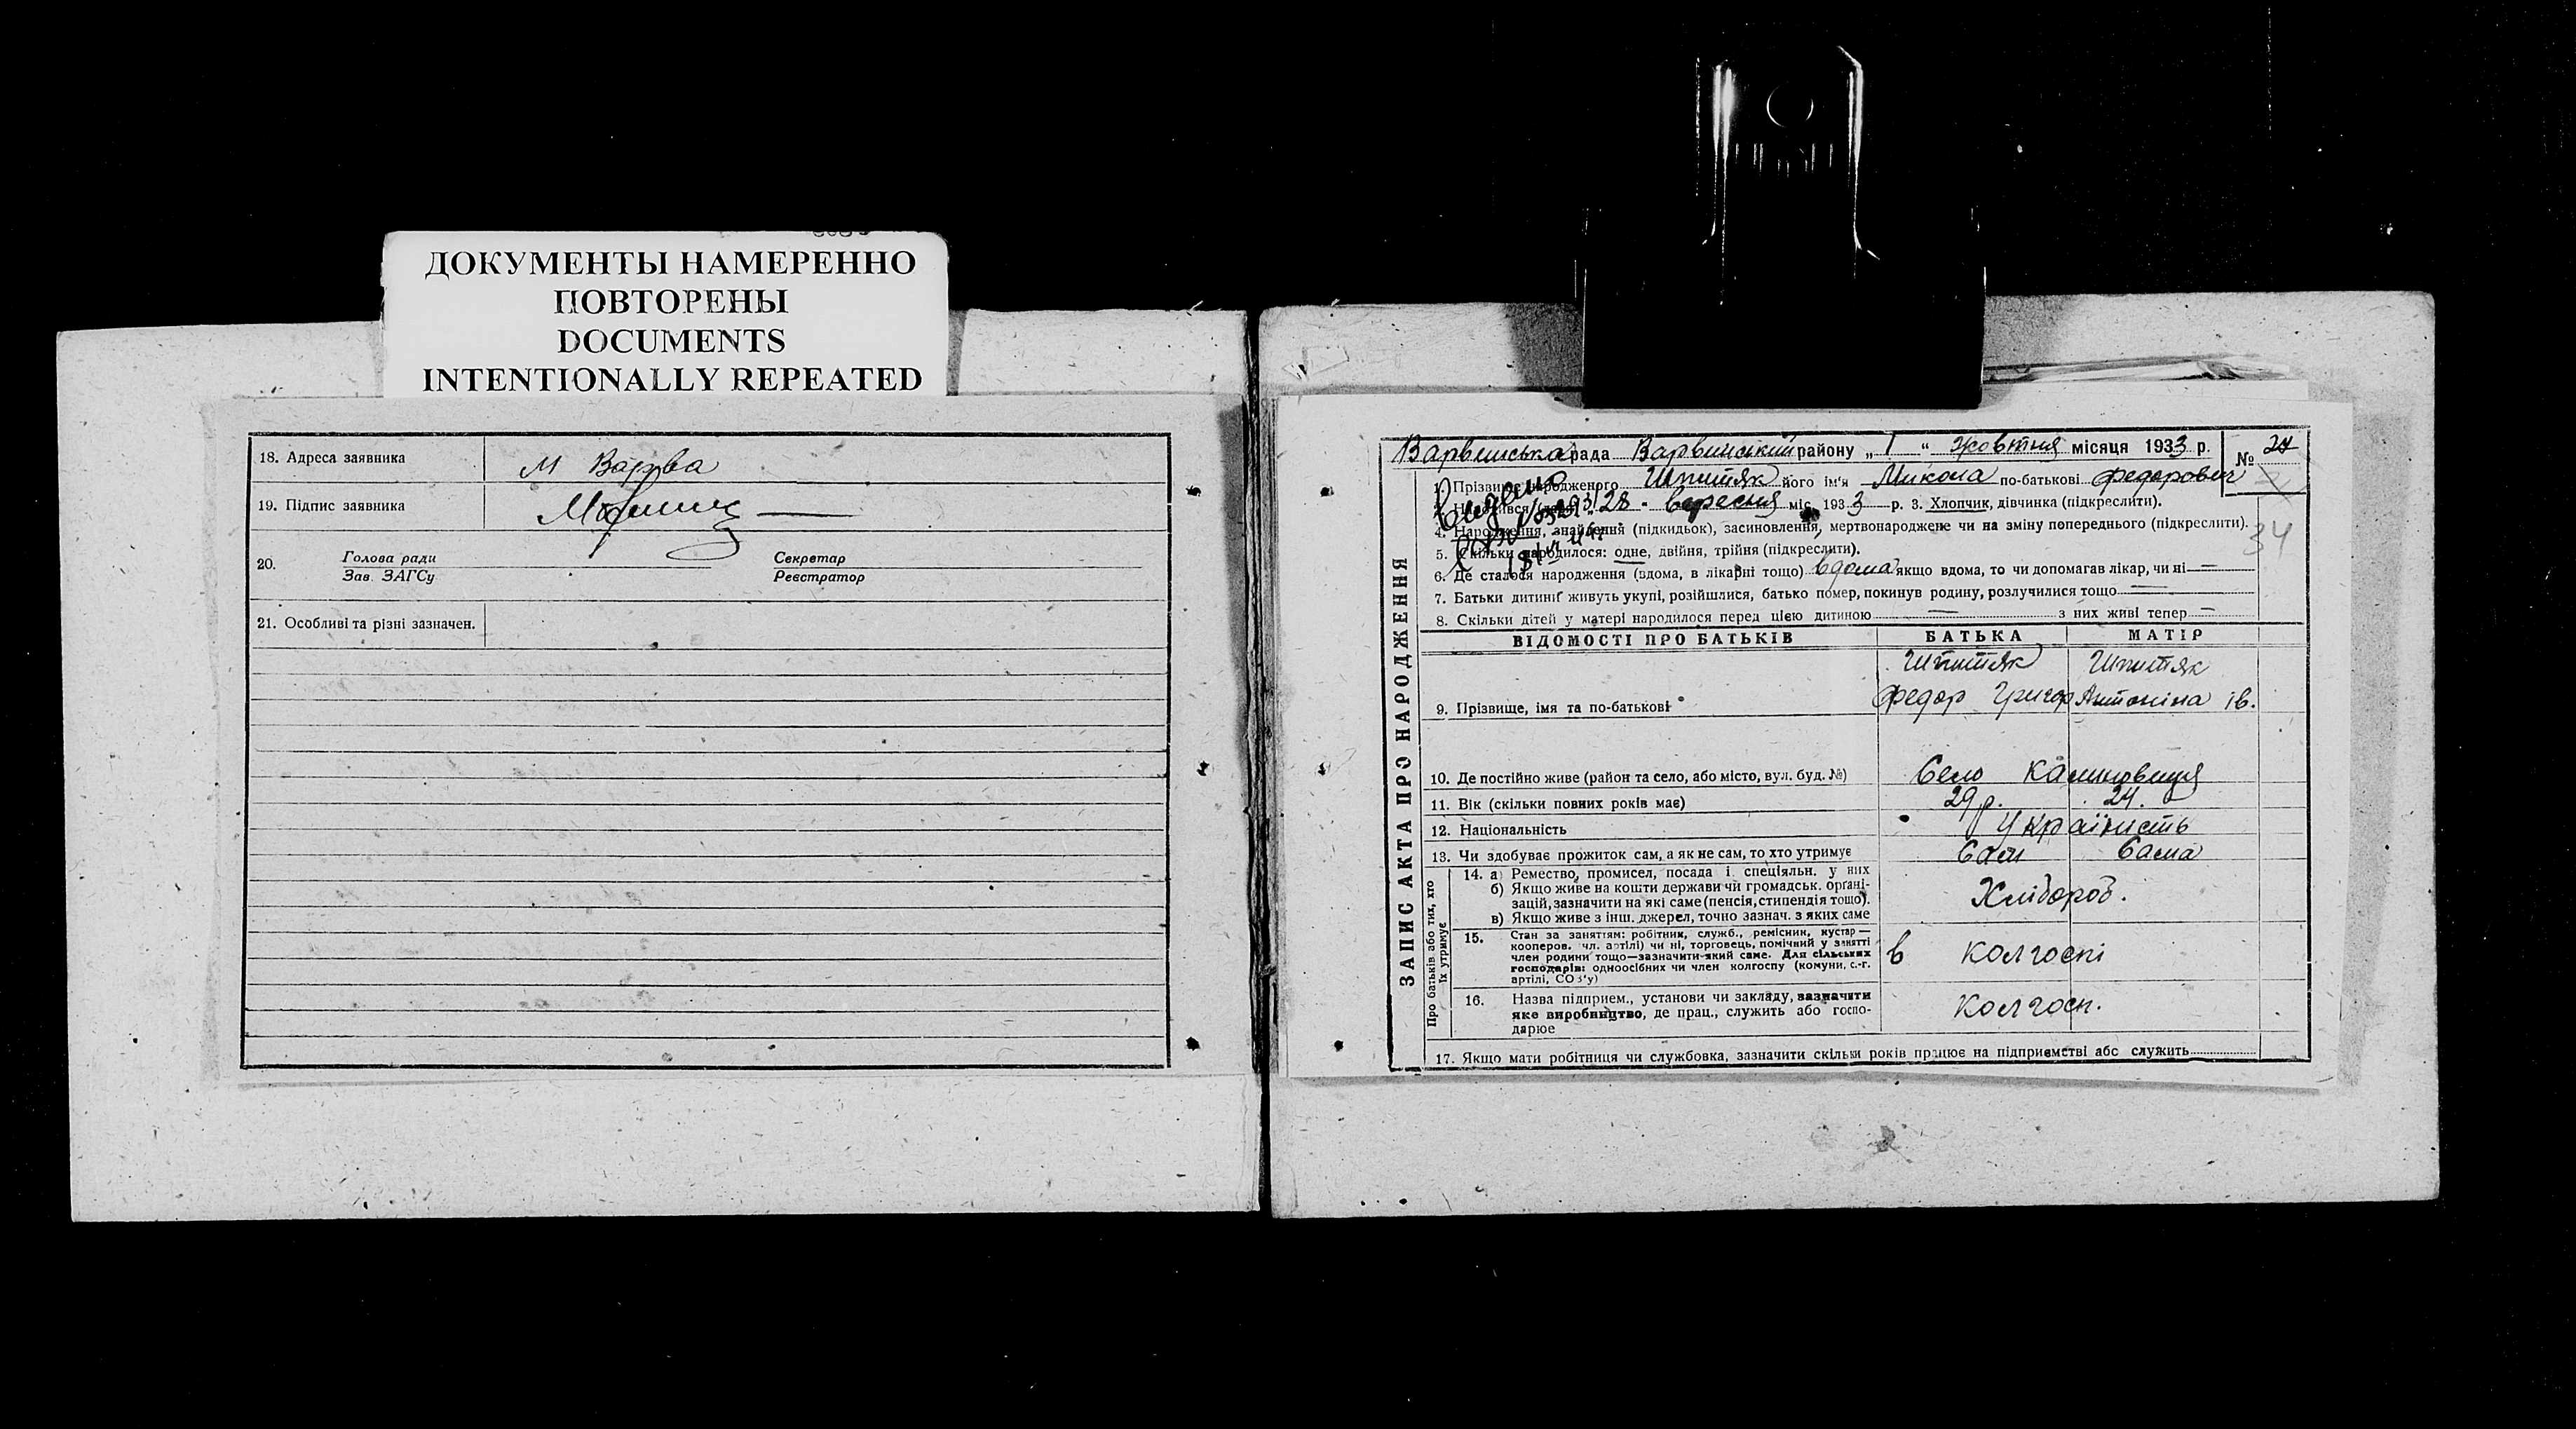 ДОКУМЕНТЫ НАМЕРЕННО
ПОВТОРЕНЫ
DOCUMENTS
INTENTIONALLY REPEATED
18. Адреса заявника М Варва
19. Підпис заявника
20. Голова ради Секретар
Зав. ЗАГСу Реєстратор
21. Особливі та різні зазначен.
ЗАПИС АКТА ПРО НАРОДЖЕННЯ
Варвинська рада Варвинський району „ 1 “ жовтня місяця 1933 р. № 24
1. Прізвище народженого Шпитяк його ім'я Микола по-батькові Федорович
28 вересня міс. 1933 р. 3. Хлопчик, дівчинка (підкреслити).
4. Народження, знайдення (підкидьок), засиновлення, мертвонароджене чи на зміну попереднього (підкреслити).
34
5. Скільки народилося: одне, двійня, трійня (підкреслити).
6. Де сталося народження (вдома, в лікарні тощо) вдома якщо вдома, то чи допомагав лікар, чи ні —
7. Батьки дитини живуть укупі, розійшлися, батько помер, покинув родину, розлучилися тощо —
8. Скільки дітей у матері народилося перед цією дитиною — з них живі тепер —
ВІДОМОСТІ ПРО БАТЬКІВ БАТЬКА МАТІР
Шпитяк Шпитяк
9. Прізвище, імя та по-батькові Федор Григор Антоніна Ів.
10. Де постійно живе (район та село, або місто, вул. буд. №) Село Калиновиця
11. Вік (скільки повних років має) 29 р. 24.
12. Національність Українсть
13. Чи здобуває прожиток сам, а як не сам, то хто утримує Сам Сама
Про батьків або тих, хто їх утримує
14. а) Ремество, промисел, посада і спеціяльн. у них
б) Якщо живе на кошти держави чи громадськ. органі-
зацій, зазначити на які саме (пенсія, стипендія тощо).
в) Якщо живе з інш. джерел, точно зазнач. з яких саме
Хлібороб.
15. Стан за заняттям: робітник, служб., ремісник, кустар—
кооперов. чл. артілі) чи ні, торговець, помічний у занятті
член родини тощо—зазначити який саме. Для сільських
господарів: одноосібних чи член колгоспу (комуни, с.-г.
артілі, СОЗ'у)
в колгоспі
16. Назва підприєм., установи чи закладу, зазначити
яке виробництво, де прац., служить або госпо-
дарює
колгосп.
17. Якщо мати робітниця чи службовка, зазначити скільки років працює на підприємстві або служить